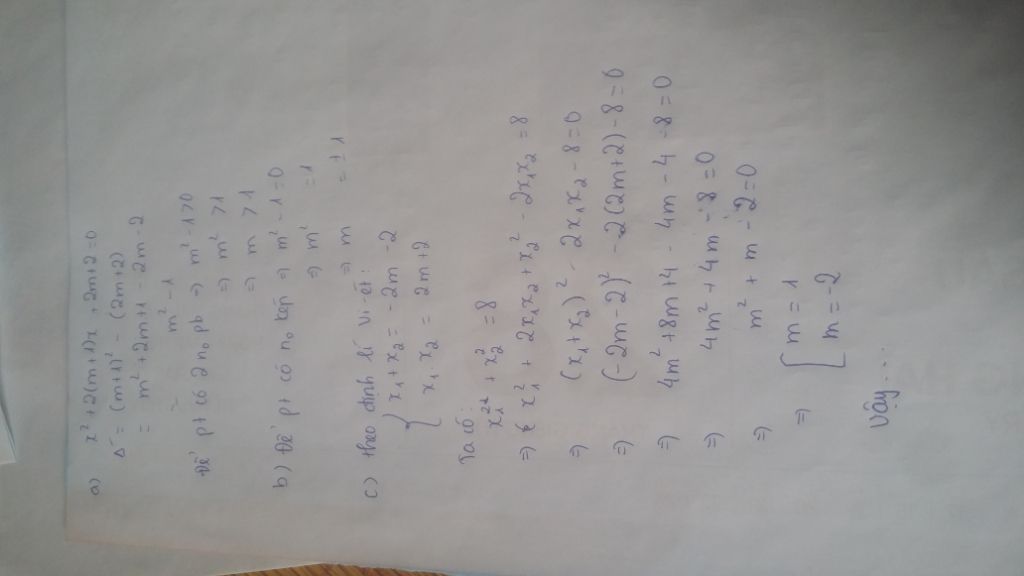 a) x² + 2(m+1)x + 2m+2=0
Δ' = (m+1)² - (2m+2)
= m² + 2m + 1 - 2m - 2
m² - 1
Để pt có 2 n₀ pb => m² - 1 > 0
=> m² > 1
=> m > 1
b) Để pt có n₀ kép => m² - 1 = 0
=> m² = 1
=> m = ± 1
c) theo định lí Vi-ét:
{ x₁ + x₂ = -2m - 2
x₁ . x₂ = 2m + 2
Ta có:
x₁² + x₂² = 8
=> x₁² + 2x₁x₂ + x₂² - 2x₁x₂ = 8
=> (x₁ + x₂)² - 2x₁x₂ - 8 = 0
=> (-2m - 2)² - 2(2m + 2) - 8 = 0
=> 4m² + 8m + 4 - 4m - 4 - 8 = 0
=> 4m² + 4m - 8 = 0
=> m² + m - 2 = 0
=> [ m = 1
m = -2
Vậy...